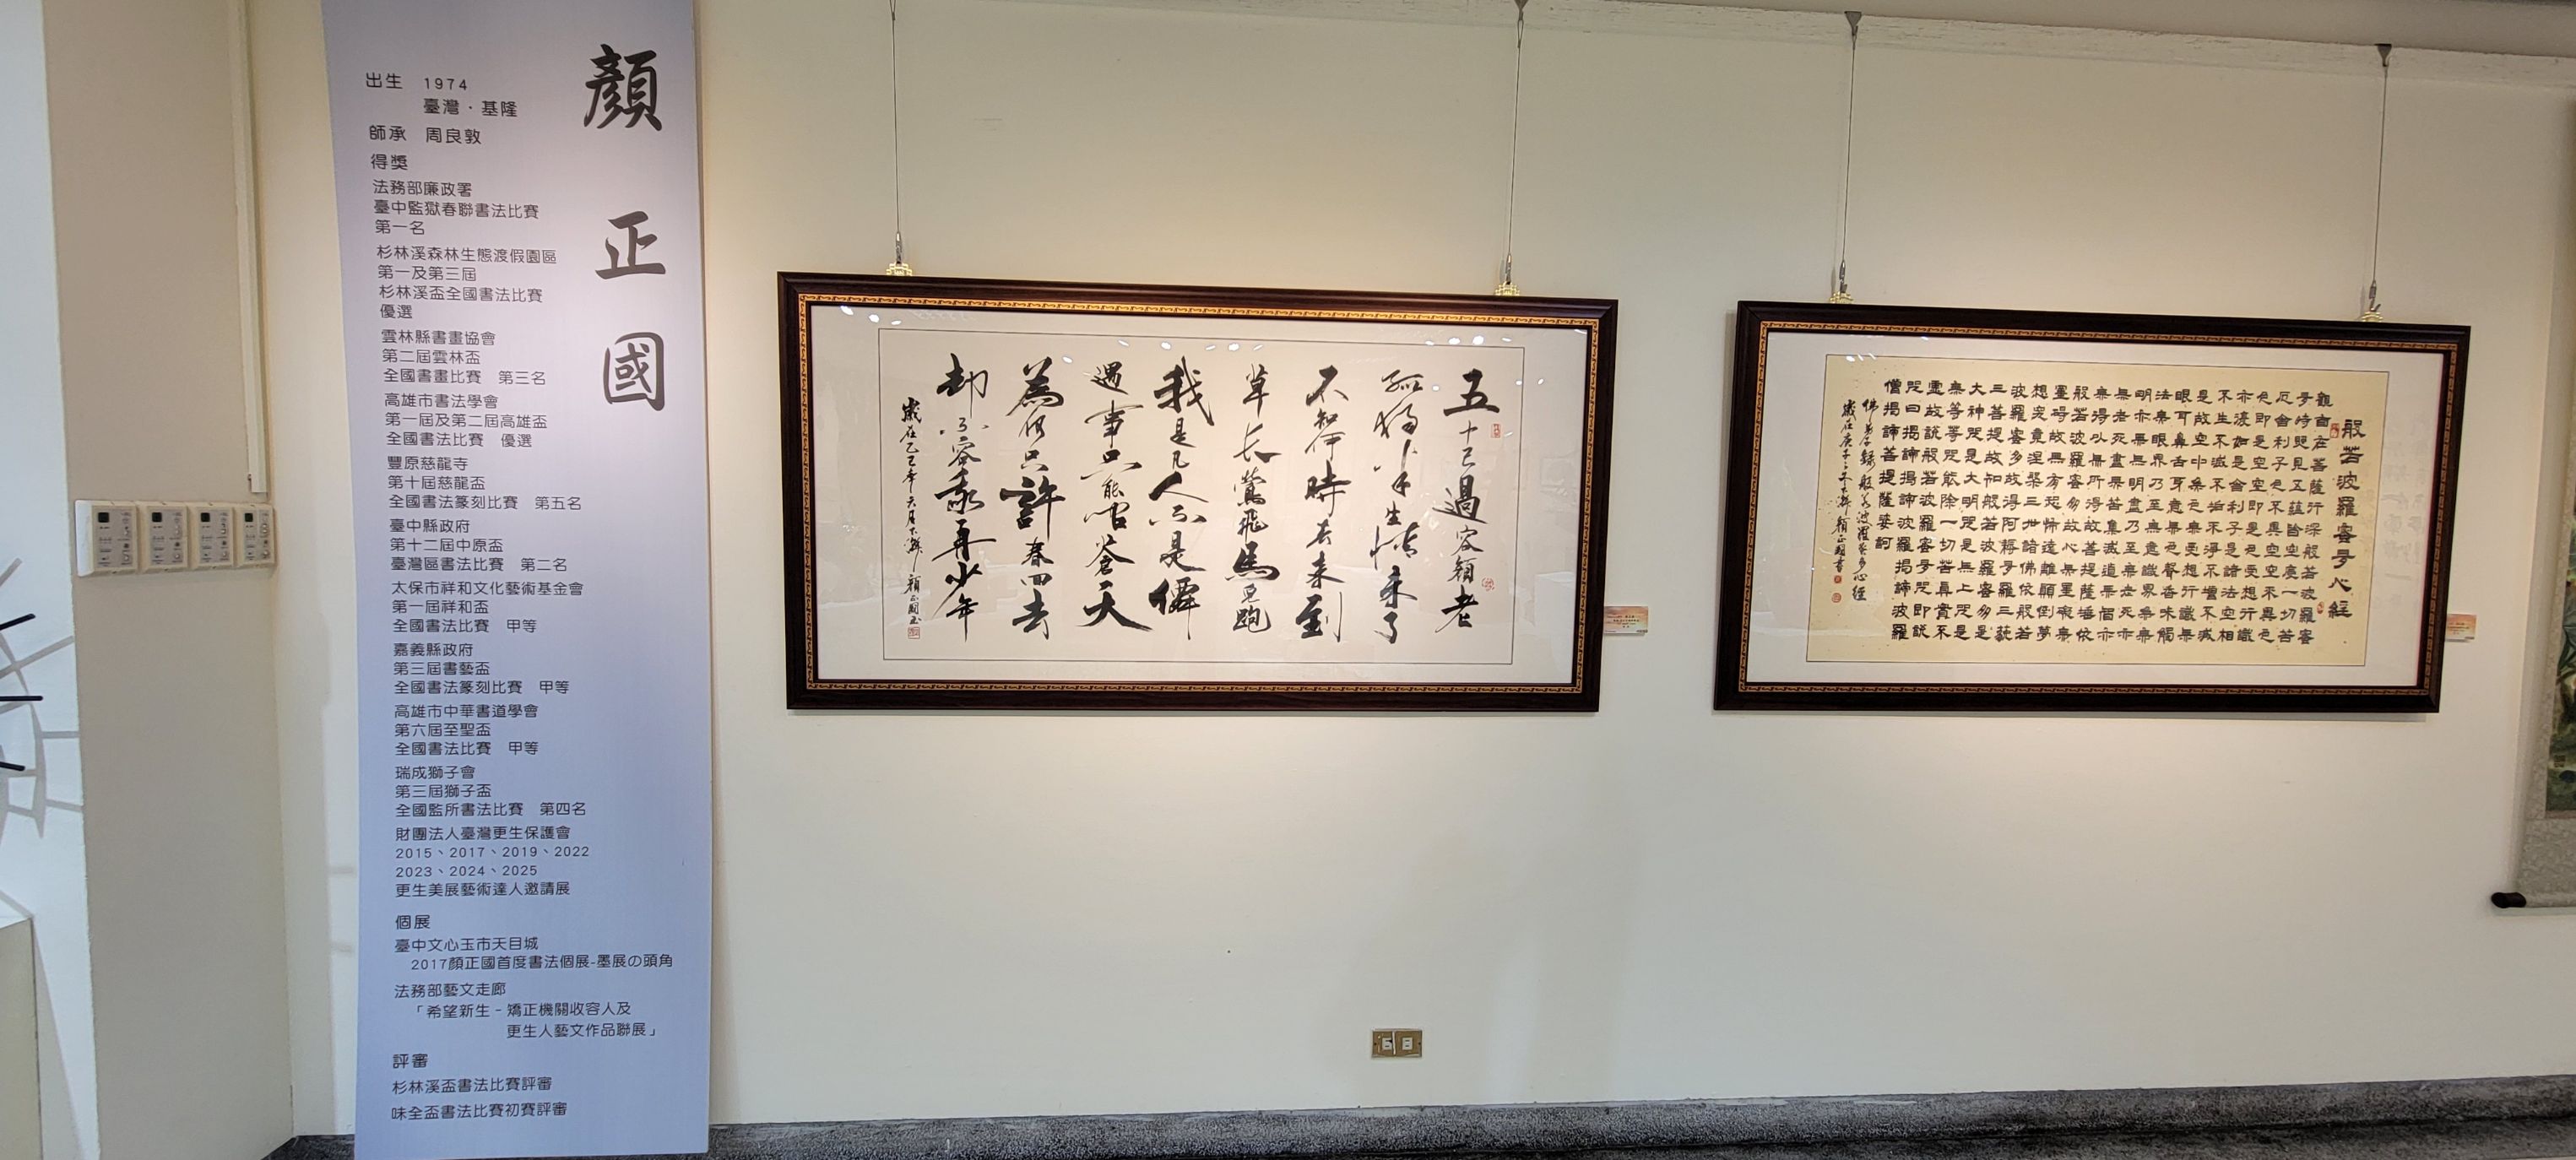 顏正國
出生 1974
臺灣・基隆
師承 周良敦
得獎
法務部廉政署
臺中監獄春聯書法比賽
第一名
杉林溪森林生態渡假園區
第一及第三屆
杉林溪盃全國書法比賽
優選
雲林縣書畫協會
第二屆雲林盃
全國書畫比賽 第三名
高雄市書法學會
第一屆及第二屆高雄盃
全國書法比賽 優選
豐原慈龍寺
第十屆慈龍盃
全國書法篆刻比賽 第五名
臺中縣政府
第十二屆中原盃
臺灣區書法比賽 第二名
太保市祥和文化藝術基金會
第一屆祥和盃
全國書法比賽 甲等
嘉義縣政府
第三屆書藝盃
全國書法篆刻比賽 甲等
高雄市中華書道學會
第六屆至聖盃
全國書法比賽 甲等
瑞成獅子會
第三屆獅子盃
全國監所書法比賽 第四名
財團法人臺灣更生保護會
2015、2017、2019、2022
2023、2024、2025
更生美展藝術達人邀請展
個展
臺中文心玉市天目城
2017顏正國首度書法個展-墨展の頭角
法務部藝文走廊
「希望新生-矯正機關收容人及
更生人藝文作品聯展」
評審
杉林溪盃書法比賽評審
味全盃書法比賽初賽評審
五十已過容顏老
孤獨半生情來了
不知何時春來到
草長鶯飛馬兒跑
我是凡人不是僊
遇事只能問蒼天
為何只許春回去
卻不容我再少年
歲在乙巳年六月下澣 顏正國書
般若波羅蜜多心經
觀自在菩薩行深般若波羅蜜
多時照見五蘊皆空度一切苦
厄舍利子色不異空空不異色
色即是空空即是色受想行識
亦復如是舍利子是諸法空相
不生不滅不垢不淨不增不減
是故空中無色無受想行識無
眼耳鼻舌身意無色聲香味觸
法無眼界乃至無意識界無無
明亦無無明盡乃至無老死亦
無老死盡無苦集滅道無智亦
無得以無所得故菩提薩埵依
般若波羅蜜多故心無罣礙無
罣礙故無有恐怖遠離顛倒夢
想究竟涅槃三世諸佛依般若
波羅蜜多故得阿耨多羅三藐
三菩提故知般若波羅蜜多是
大神咒是大明咒是無上咒是
無等等咒能除一切苦真實不
虛故說般若波羅蜜多咒即說
咒曰揭諦揭諦波羅揭諦波羅
僧揭諦菩提薩婆訶
佛弟子錄般若波羅蜜多心經